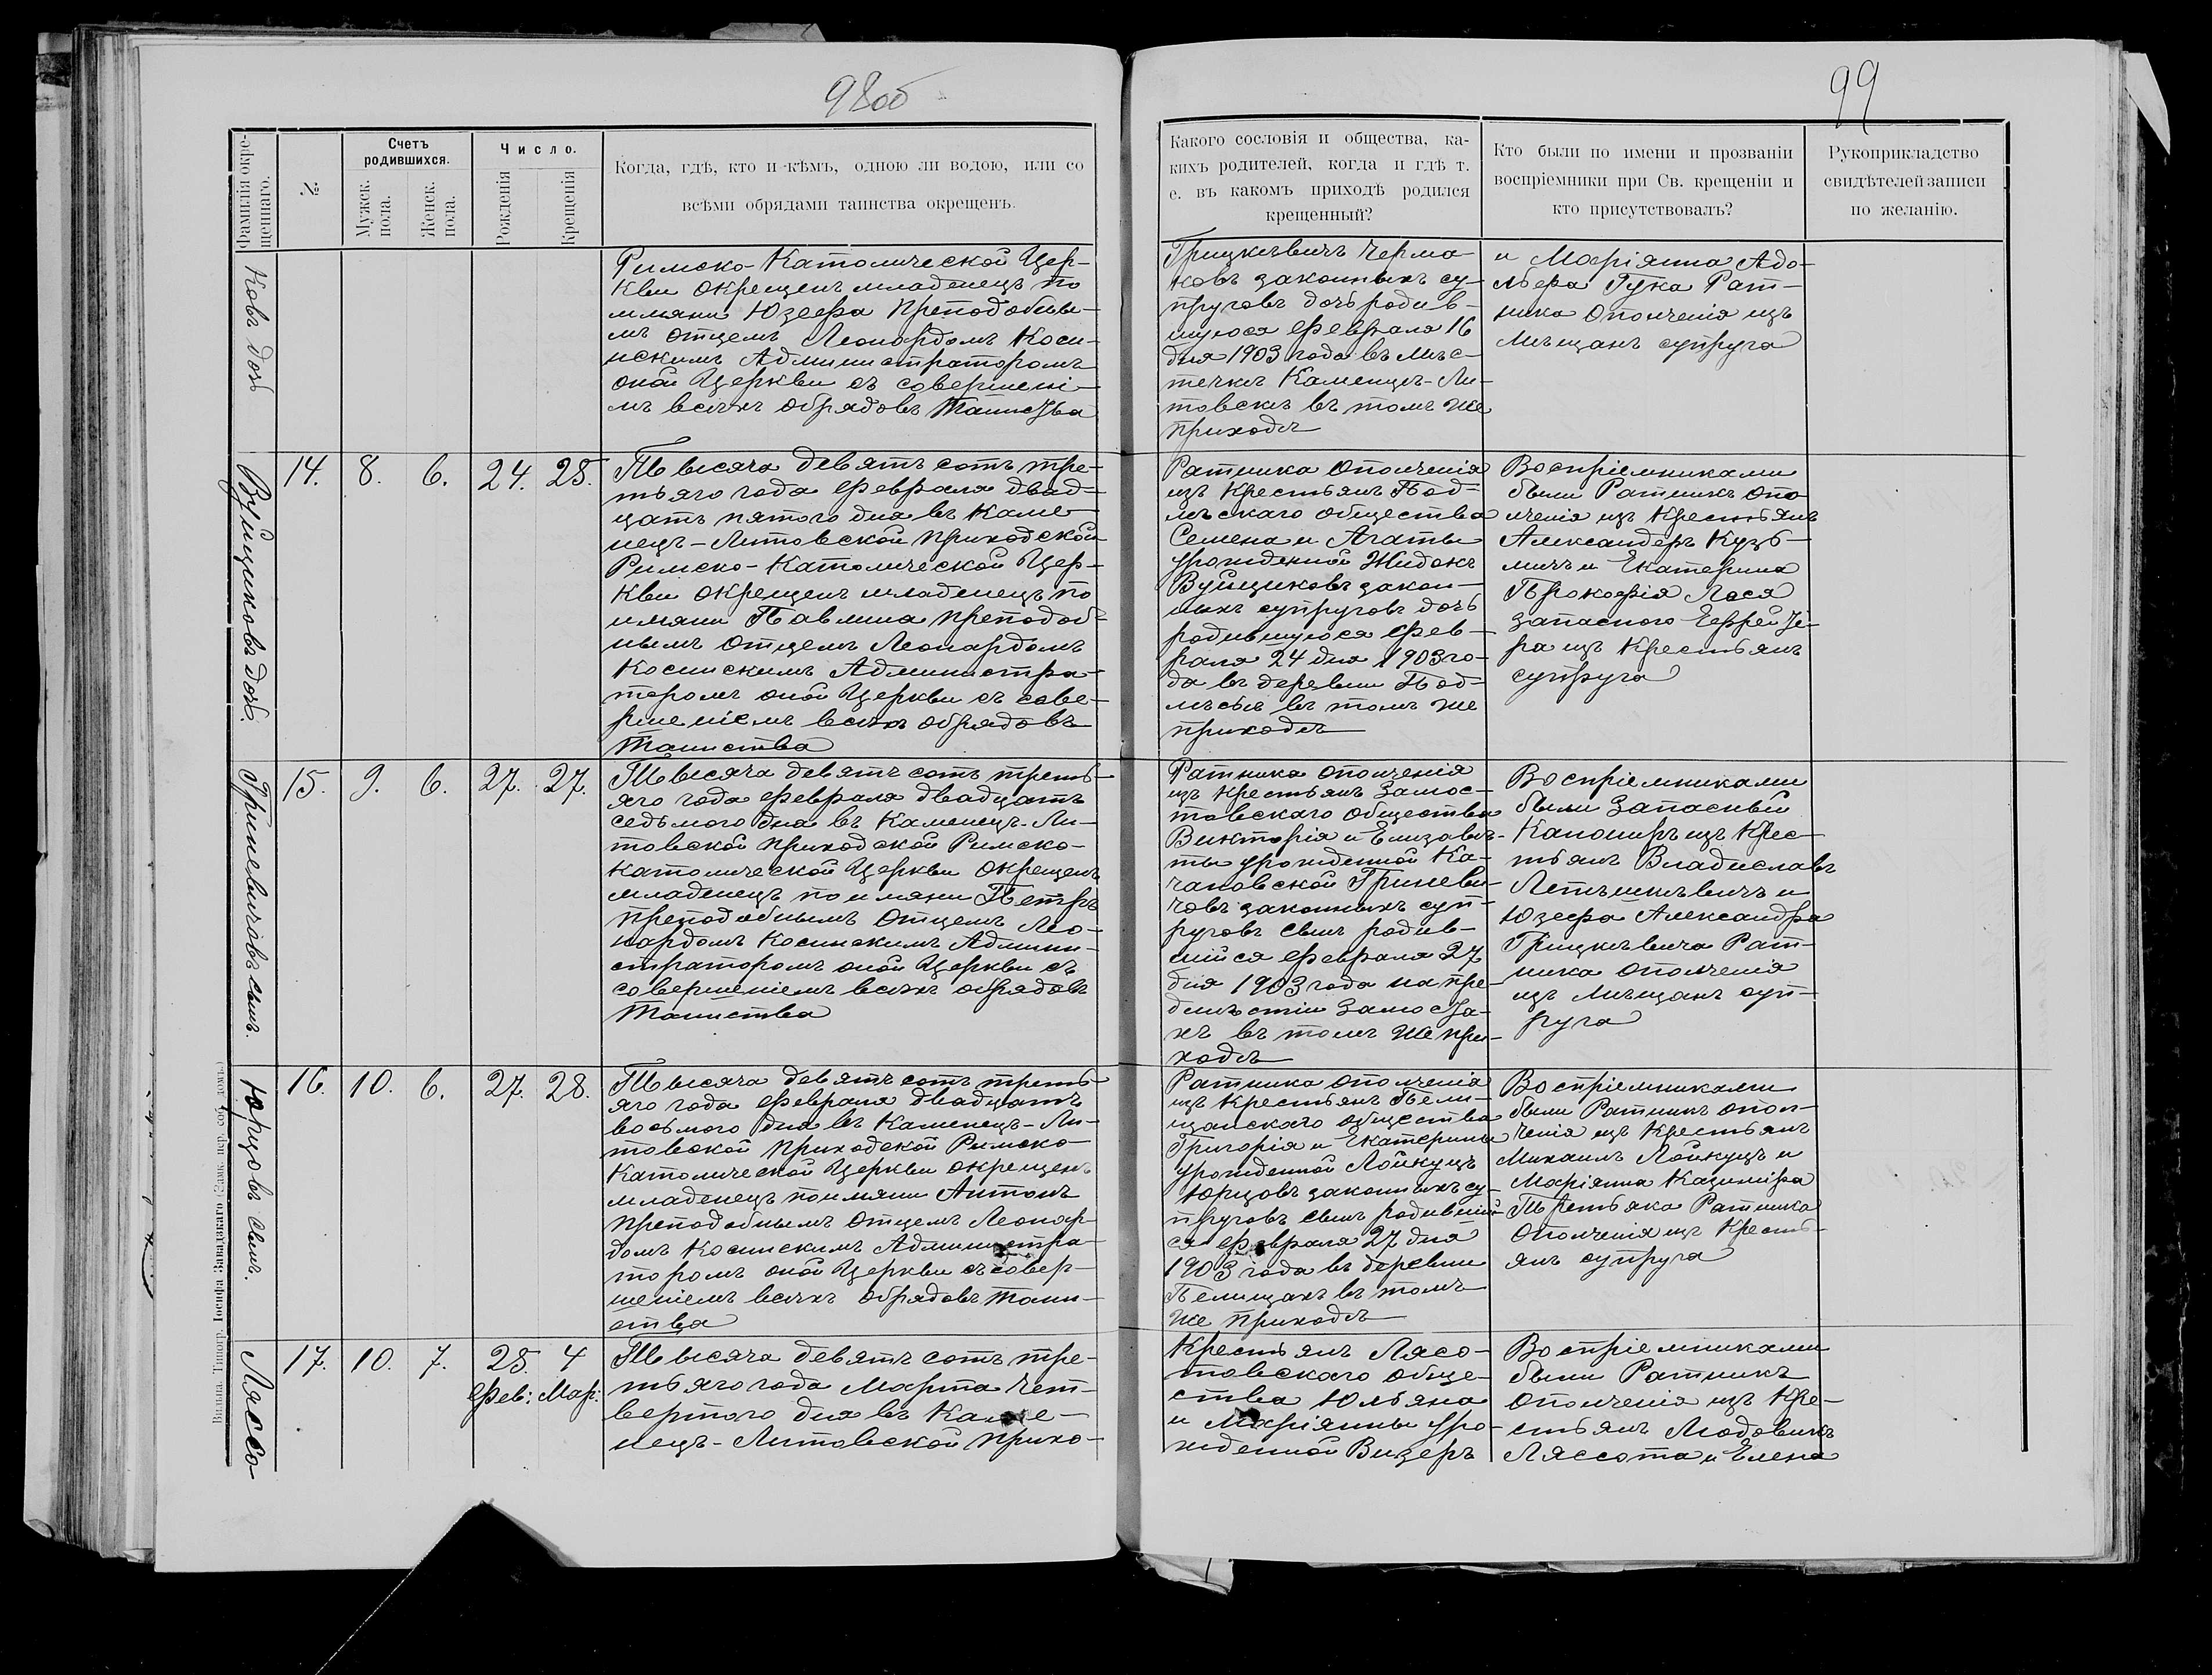 98об
99
Фамилія окре-
щеннаго.
№
Счетъ
родившихся.
Мужск.
пола.
Женск.
пола.
Число.
Рожденія
Крещенія
Когда, гдѣ, кто и кѣмъ, одною ли водою, или со
всѣми обрядами таинства окрещенъ.
Какого сословія и общества, ка-
кихъ родителей, когда и гдѣ т.
е. въ какомъ приходѣ родился
крещенный?
Кто были по имени и прозваніи
воспріемники при Св. крещеніи и
кто присутствовалъ?
Рукоприкладство
свидѣтелей записи
по желанію.
ковъ дочь
Римско-Католической Цер-
кви окрещенъ младенецъ по
имяни Юзефа Преподобны-
мъ отцемъ Леонардомъ Коси-
нскимъ Администраторомъ
оной Церкви съ совершені-
мъ всѣхъ обрядовъ Таинства
Грицкѣвичъ Черма-
ковъ законныхъ су-
пруговъ дочь родив-
шуюся февраля 16
дня 1903 года въ мѣс-
течкѣ Каменцѣ-Ли-
товскѣ въ томъ же
приходѣ
и Маріянна Адо-
льфа Гука Рат-
ника ополченія изъ
мѣщанъ супруга
Вуйщиковъ дочь.
14.
8.
6.
24.
25.
Тысяча девятьсотъ тре-
тьяго года февраля двад-
цать пятого дня въ Каме-
нецъ-Литовской приходской
Римско-Католической Цер-
кви окрещенъ младенецъ по
имяни Павлина преподоб-
нымъ отцемъ Леонардомъ
Косинскимъ Администра-
торомъ оной Церкви съ сове-
ршеніемъ всѣхъ обрядовъ
Таинства
Ратника ополченія
изъ крестьянъ Под-
лѣскаго общества
Семена и Агаты
урожденной Жидокъ
Вуйщиковъ закон-
ныхъ супруговъ дочь
родившуюся фев-
раля 24 дня 1903 го-
да въ деревни Под-
лѣсья въ томъ же
приходѣ
Воспріемниками
были Ратникъ опо
лченія изъ крестьянъ
Александеръ Кузь-
мичъ и Екатерина
Прокофія Лося
запасного Еффейте-
ра изъ крестьянъ
супруга
Гриневичовъ сынъ.
15.
9.
6.
27.
27.
Тысяча девятьсотъ треть-
яго года февраля двадцать
седьмого дня въ Каменецъ-Ли-
товской приходской Римско-
Католической Церкви окрещенъ
младенецъ по имяни Петръ
преподобнымъ отцемъ Лео-
нардомъ Косинскимъ Админи-
страторомъ оной Церкви съ
совершеніемъ всѣхъ обрядовъ
Таинства
Ратника ополченія
изъ крестьянъ Замос-
товскаго общества
Викторія и Елизавѣ-
ты урожденной Ка-
чановской Гриневи-
човъ законныхъ суп-
руговъ сынъ родив-
шійся февраля 27
дня 1903 года на пре-
дмѣстіи Замоста-
хъ въ томъ же при-
ходѣ
Воспріемниками
были Запасный
Канониръ изъ крес-
тьянъ Владиславъ
Летѣшкѣвичъ и
Юзефа Александра
Грицкѣвича Рат-
ника ополченія
изъ мѣщанъ суп-
руга
Юрцовъ сынъ.
16.
10.
6.
27.
28.
Тысяча девятьсотъ треть-
яго года февраля двадцать
восьмого дня въ Каменецъ-Ли-
товской приходской Римско-
Католической Церкви окрещенъ
младенецъ по имяни Антонъ
преподобнымъ отцемъ Леонар-
домъ Косинскимъ Администра-
торомъ оной Церкви съ совер-
шеніемъ всѣхъ обрядовъ Таин-
ства
Ратника ополченія
изъ крестьянъ Пели-
щанскаго общества
Григорія и Екатерины
урожденной Лойкуцъ
Юрцовъ законныхъ су-
пруговъ сынъ родившій-
ся февраля 27 дня
1903 года въ деревни
Пелищахъ въ томъ
же приходѣ
Воспріемниками
были Ратникъ опол-
ченія изъ крестьянъ
Михаилъ Лойкуцъ и
Маріянна Казиміра
Третьяка Ратника
ополченія изъ кресть-
янъ супруга
Лясо
17.
10.
7.
25.
Фев:
4
Мар:
Тысяча девятьсотъ тре-
тьяго года Марта чет-
вертого дня въ Каме-
нецъ-Литовской прихо-
Крестьянъ Лясо-
товскаго обще-
ства Юльяна
и Маріянны уро-
жденной Визеръ
Воспріемниками
были Ратникъ
ополченія изъ кре-
стьянъ Людовикъ
Лясcота и Елена
Вильна. Типогр. Іосифа Завадзкаго (Замк. пер. соб. домъ.)